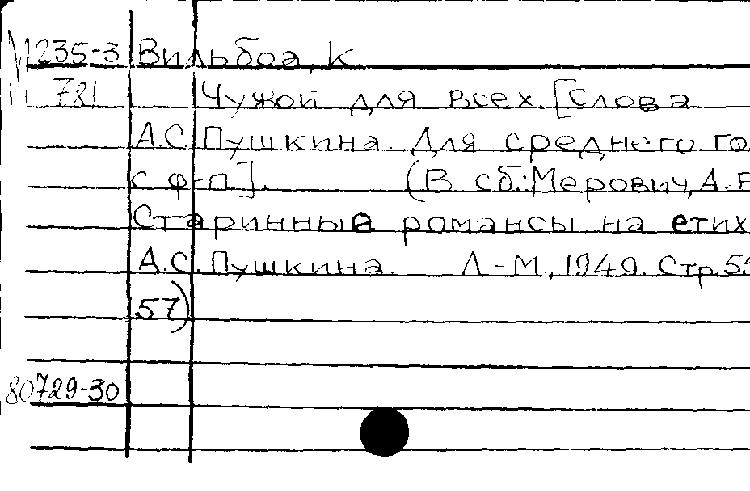 М235-3 Вильбоа, К
М 781 Чужой для всех. [Слова
А.С. Пушкина. Для среднего го
с ф-п]. (В сб.: Мерович, А.
Старинные романсы на стих
А.С. Пушкина. Л-М, 1949. Стр. 55
57)
80729-30